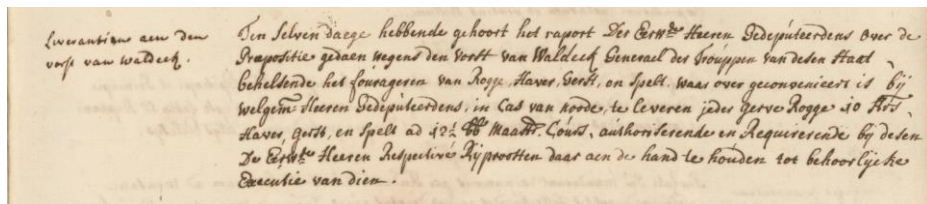 Liverantien aen den
vorst van waldeck.
Ten selven daege hebbende gehoort het raport Der Eerwde Heeren Gedeputeerdens over de
Præpositie gedaen wegens den vorst van Waldeck Generael der Trouppen van desen Staat
behelsende het fourageren van Rogge, Haver, Gerst, en Spelt. waer over geconvenieert is bij
welgem. Heeren Gedeputeerdens, in Cas van norde, te leveren jeder gerve Rogge 10
Haver, Gerst, en Spelt ad 12½ Maastr. Cours, authoriserende en Requirerende bij desen
De Eerwde Heeren Respective Rijproosten daar aen de hand te houden tot behoorlycke
Executie van dien.